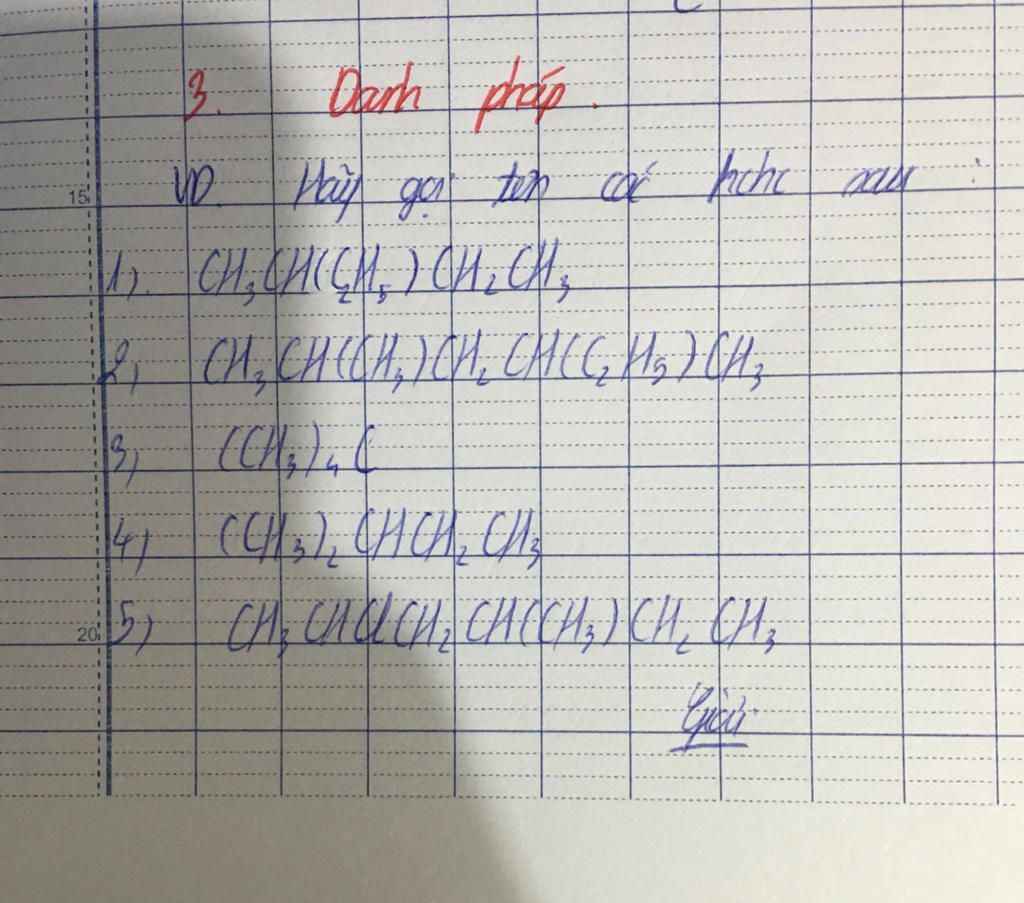 3. Danh pháp.
15
VD. Hãy gọi tên các hchc sau :
1). CH₃CH(C₂H₅)CH₂CH₃
2) CH₃CH(CH₃)CH₂CH(C₂H₅)CH₃
3) (CH₃)₄C
4) (CH₃)₂CHCH₂CH₃
20
5) CH₃CHClCH₂CH(CH₃)CH₂CH₃
Giải